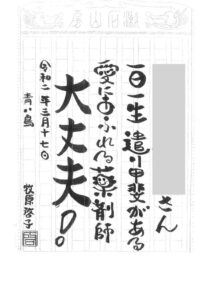 さん
一日一生 遣り甲斐がある
愛にあふれる薬剤師
大丈夫!。
令和二年三月十七日
青い鳥
牧原啓子